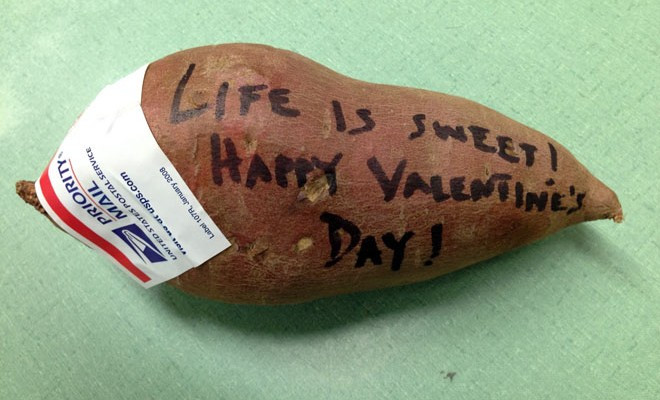 LIFE IS SWEET!
HAPPY VALENTINE'S
DAY!
PRIORITY
MAIL
UNITED STATES POSTAL SERVICE
Visit us at usps.com
Label 107R, January 2008